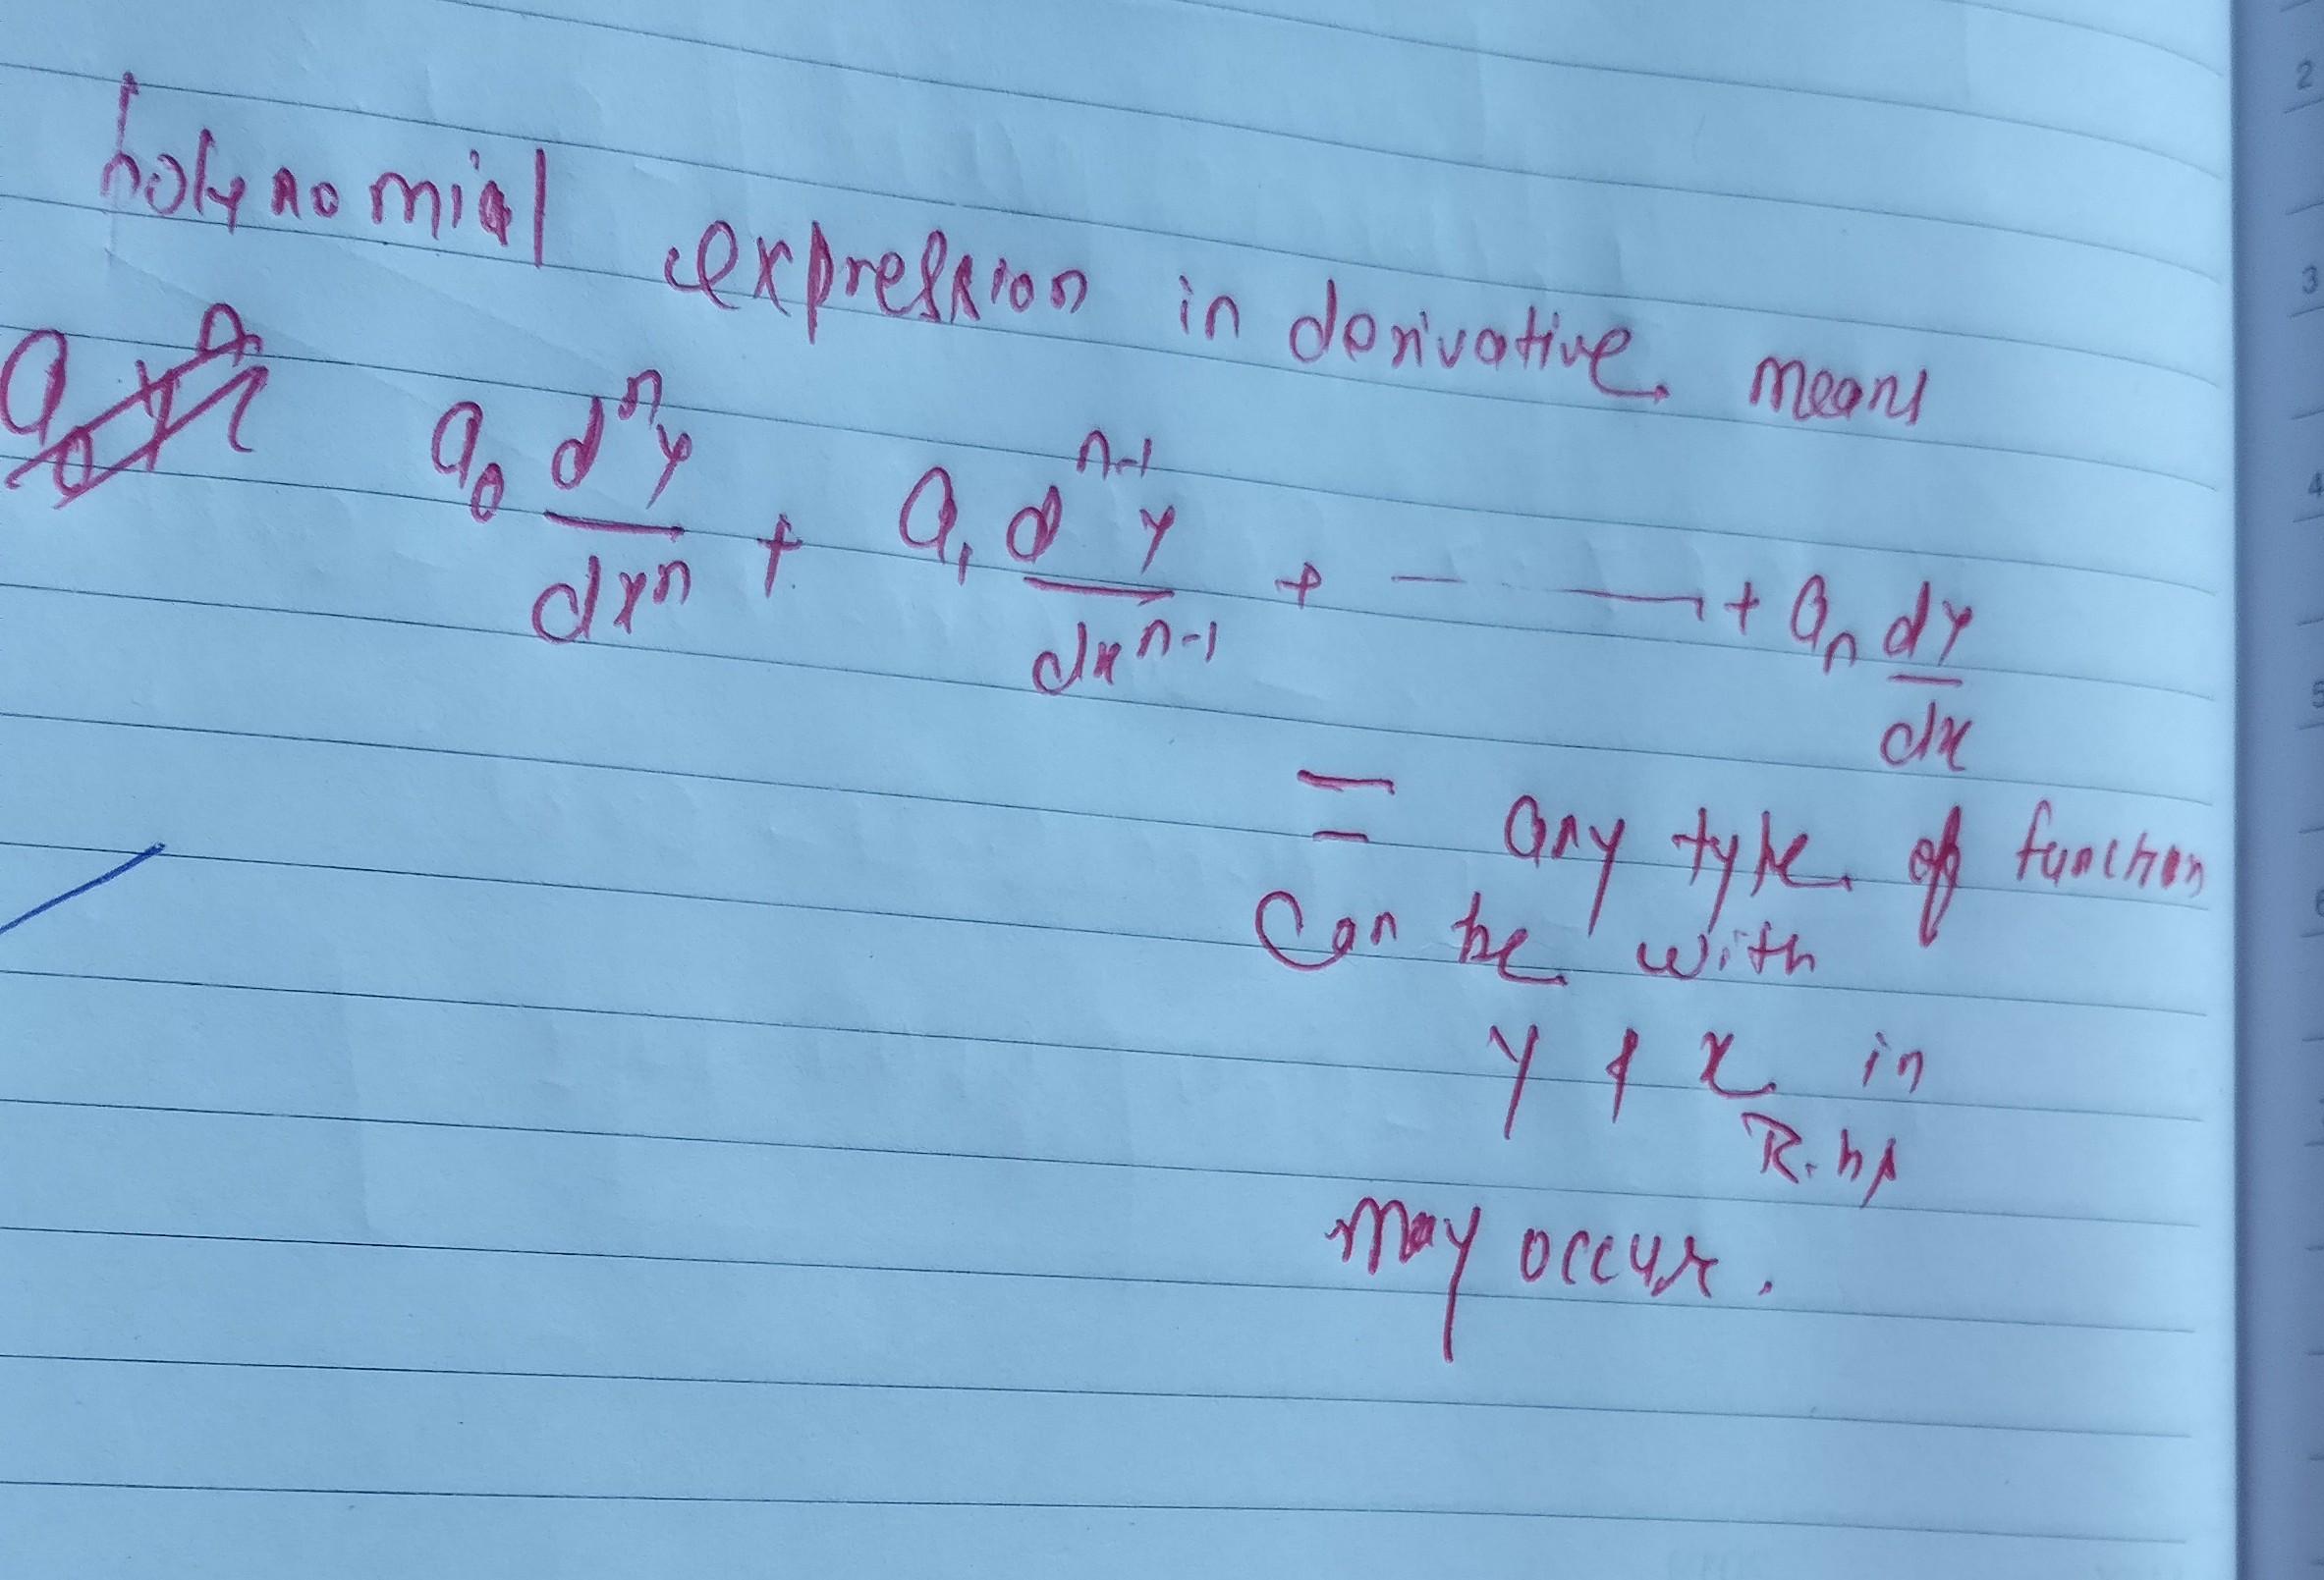 polynomial expression in derivative means
a₀ dⁿy/dxⁿ + a₁ dⁿ⁻¹y/dxⁿ⁻¹ + - - — + aₙ dy/dx
= any type of function
can be with
y & x in
R.hs
may occur.
2
3
4
5
6